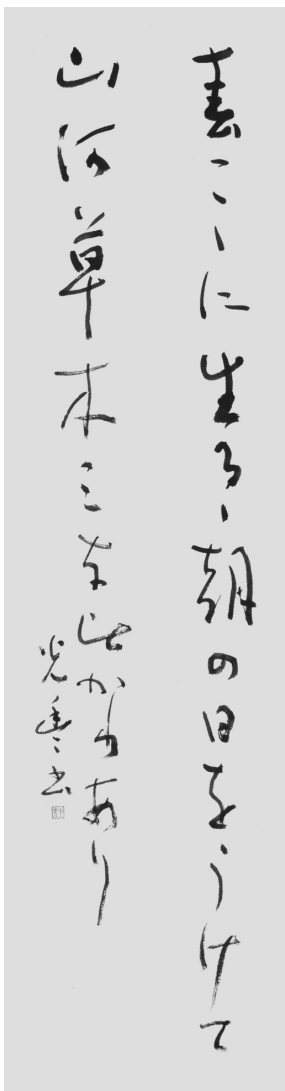 春ここに生るゝ朝の日をうけて
山河草木みな光あり
光豊書